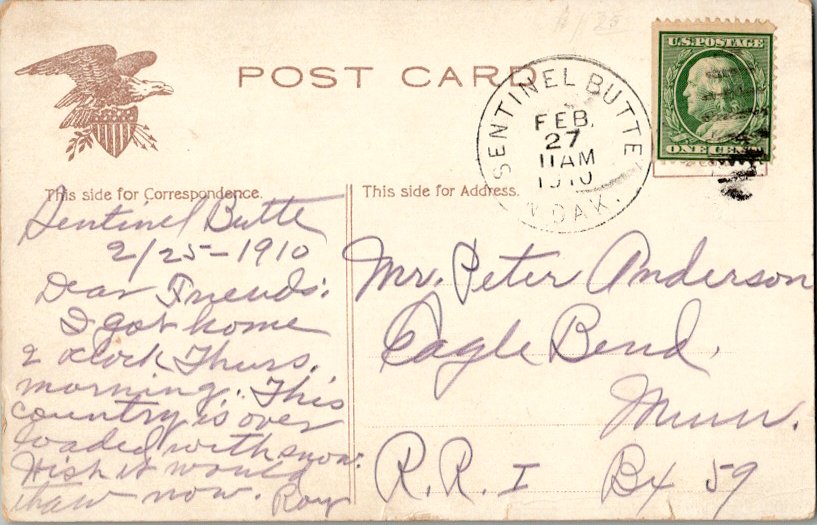 POST CARD
U.S. POSTAGE
ONE CENT
SENTINEL BUTTE
FEB.
27
11AM
1910
N. DAK.
This side for Correspondence.
This side for Address.
Sentinel Butte
2/25-1910
Dear Friends:
I got home
2 oclock Thurs.
morning. This
country is over
loaded with snow.
Wish it would
thaw now. Roy
Mr. Peter Anderson
Eagle Bend.
Minn.
R.R. I Bx 59